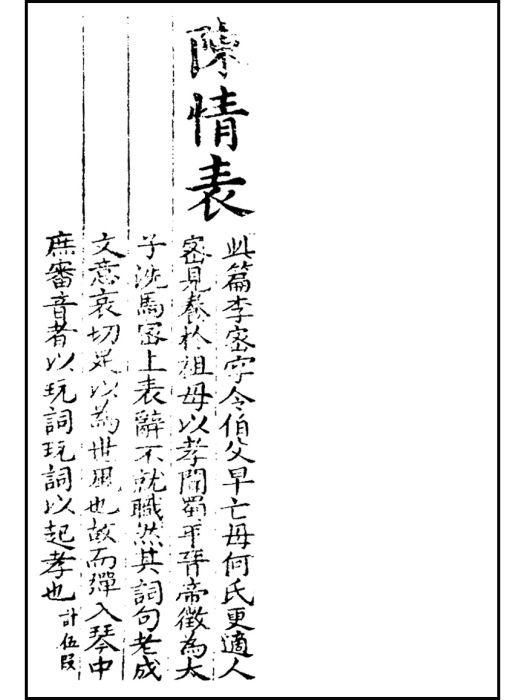 陳情表
此篇李密字令伯父早亡毋何氏更適人
密見養於祖母以孝聞蜀平晉帝徵為太
子洗馬密上表辭不就職然其詞句老成
文意哀切足以為世風也故而彈入琴中
庶審音者以玩詞玩詞以起孝也 計伍段